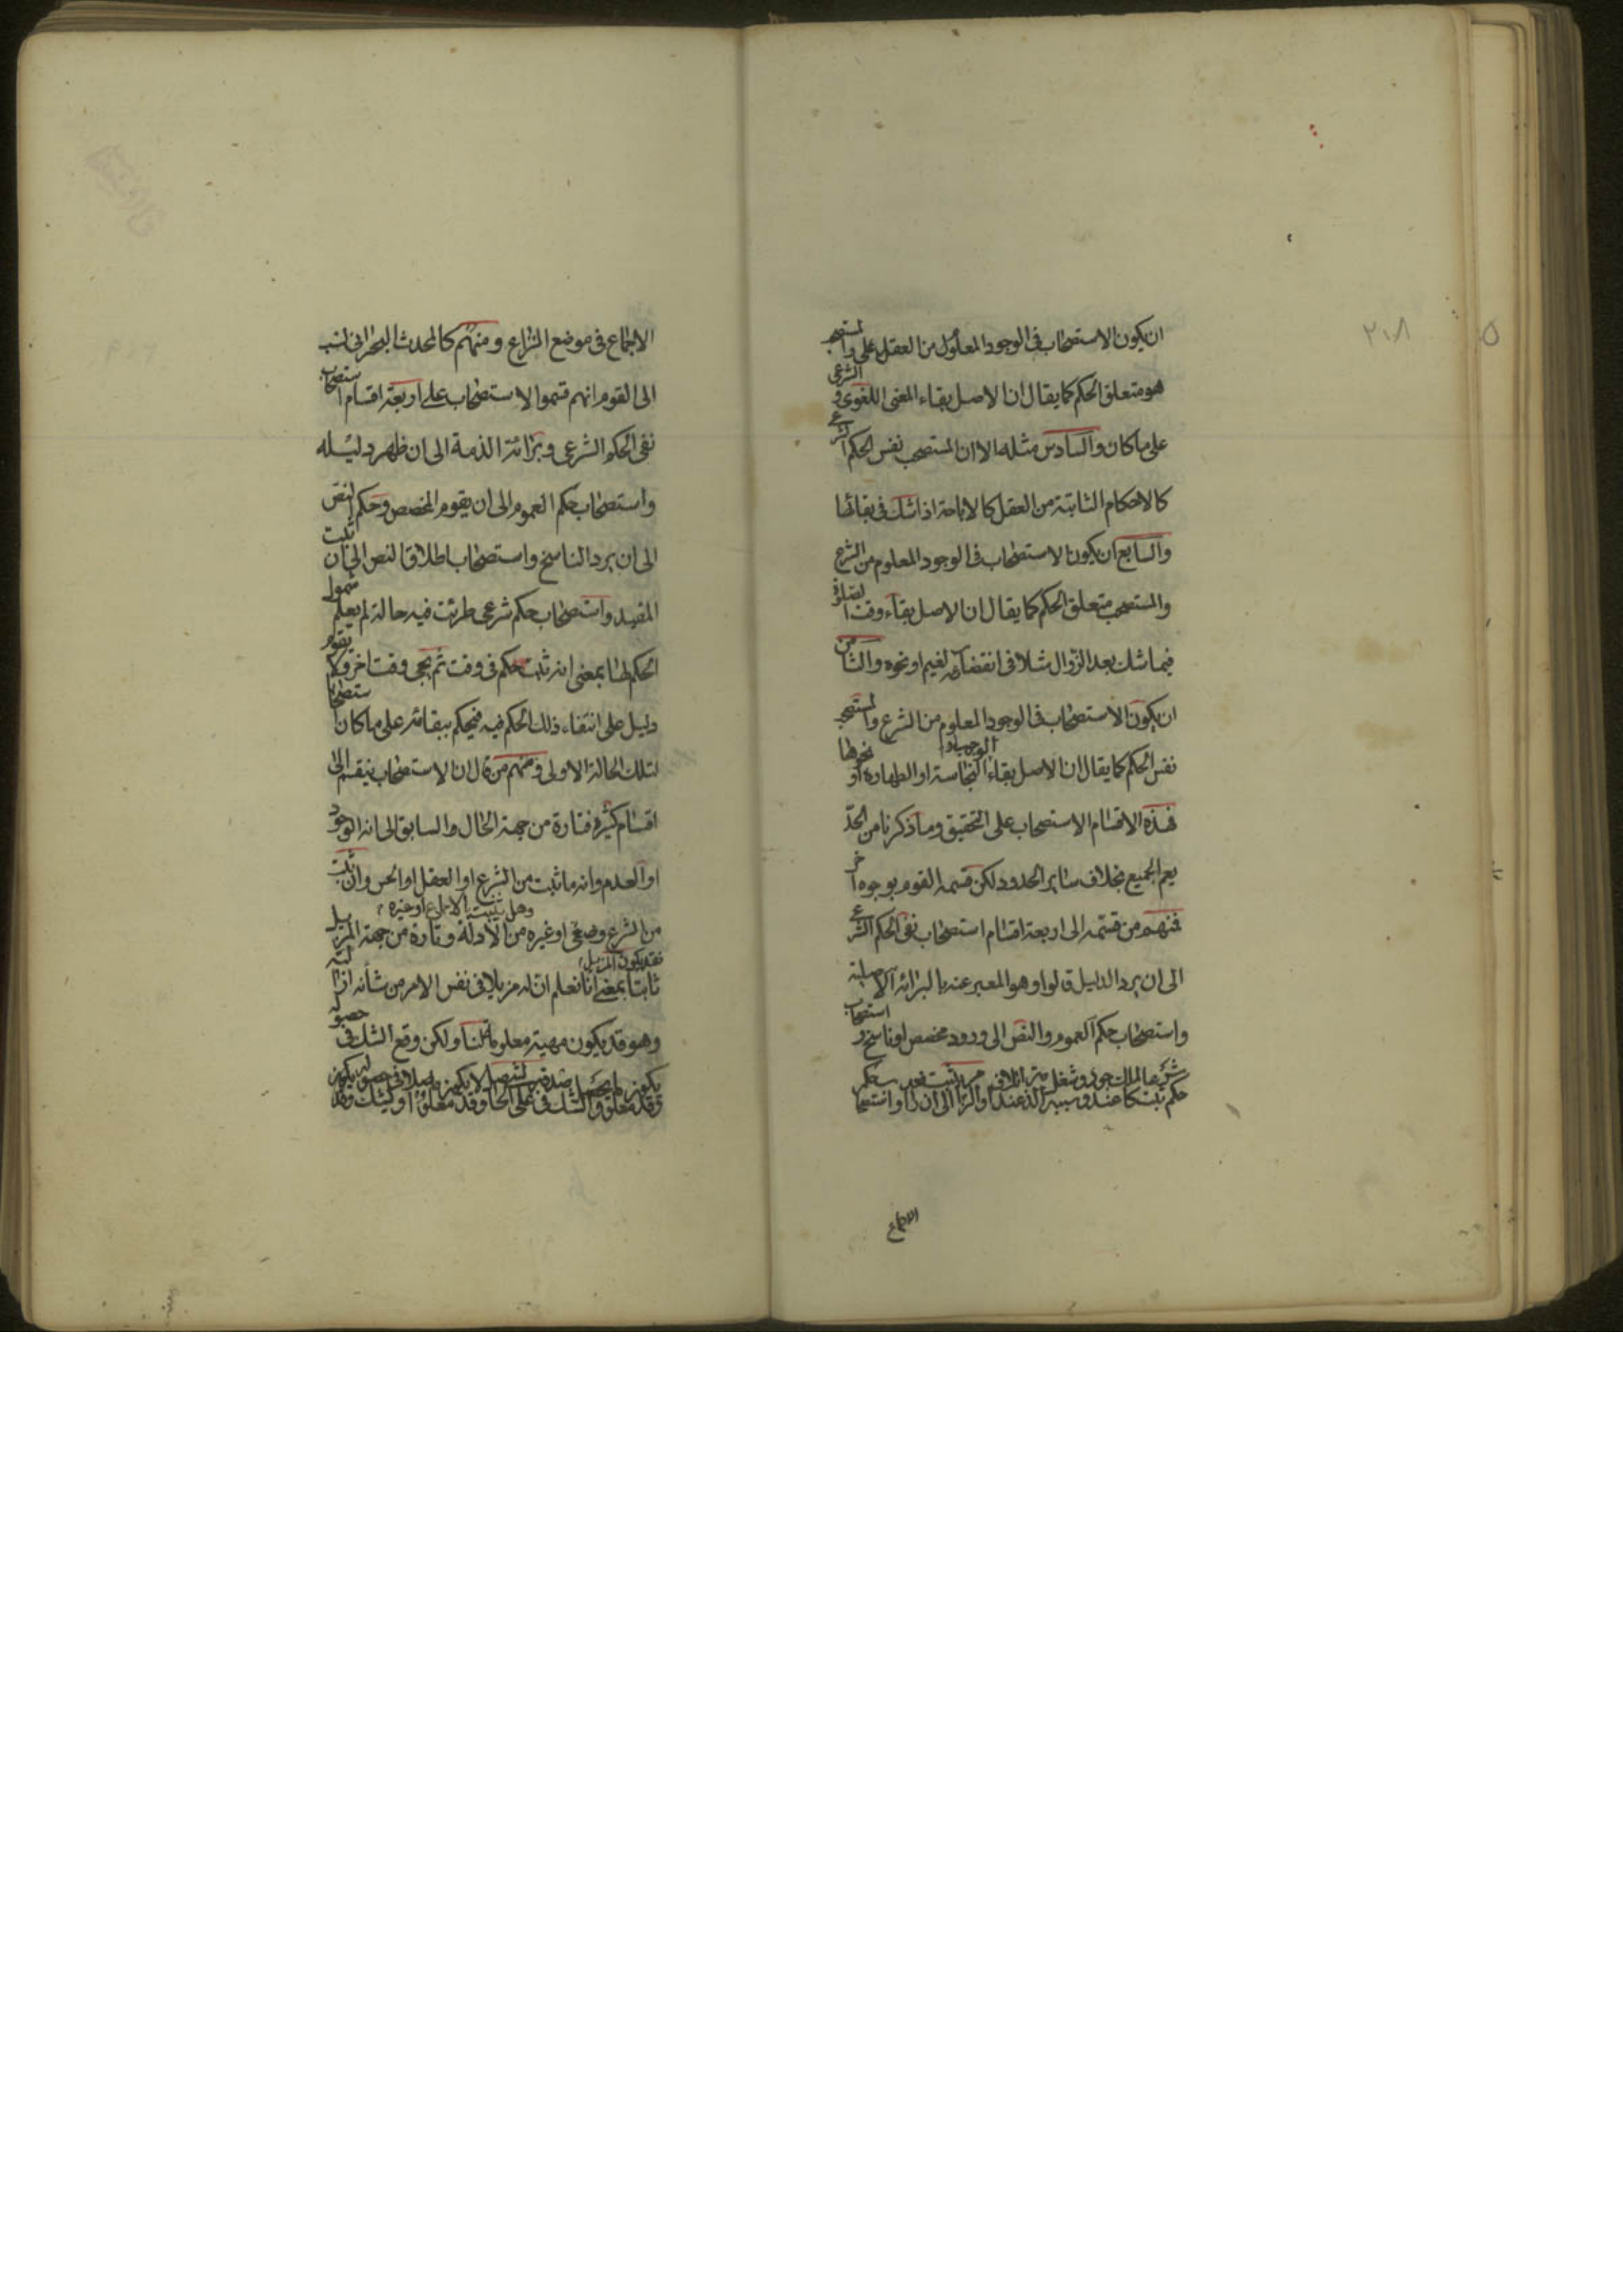 ٢١٨
ان يكون الاستصحاب فى الوجود المعلول من العقل على والمستصحب
هو متعلق الحكم كما يقال ان الاصل بقاء المعنى اللغوى و الشرعى
على ما كان والسادس مثله الا ان المستصحب نفس الحكم الشرعى
كالاحكام الثابتة من العقل كالاباحة اذا شك فى بقائها
والسابع ان يكون الاستصحاب فى الوجود المعلوم من الشرع
والمستصحب متعلق الحكم كما يقال ان الاصل بقاء وقت الصلوة
فيما شك بعد الزوال مثلا فى انقضائه لغيم او نحوه والثامن
ان يكون الاستصحاب فى الوجود المعلوم من الشرع والمستصحب
نفس الحكم كما يقال ان الاصل بقاء الوجوب او النجاسة او الطهارة او نحوها
فهذه الاقسام الاستصحاب على التحقيق وما ذكرنا من الحدّ
يعم الجميع بخلاف ساير الحدود لكن قسمه القوم بوجوه اخر
فمنهم من قسّمه الى اربعة اقسام استصحاب نفى الحكم الشرعى
الى ان يرد الدليل قالوا وهو المعبر عنه بالبرائة الاصلية
واستصحاب حكم العموم والنص الى ورود مخصص او ناسخ و استصحاب
حكم ثبت شرعا كالملك عند وجود سببه وشغل الذمة عند اتلاف او التزام الى ان يثبت رافعه واستصحاب حكم
الاجماع
الاجماع فى موضع النزاع ومنهم كالمحدث البحرانى نسب
الى القوم انهم قسموا الاستصحاب على اربعة اقسام استصحاب
نفى الحكم الشرعى وبرائة الذمة الى ان ظهر دليله
واستصحاب حكم العموم الى ان يقوم المخصص وحكم النص
الى ان يرد الناسخ واستصحاب اطلاق النص الى ان ثبت
المقيد واستصحاب حكم شرعى طرئت فيه حالة لم يعلم شمول
الحكم لها بمعنى انه ثبت حكم فى وقت ثم يجى وقت اخر ولا يقوم
دليل على انتفاء ذلك الحكم فيه فيحكم ببقائه على ما كان استصحابا
لتلك الحالة الاولى ومنهم من قال ان الاستصحاب ينقسم الى
اقسام كثيرة فتارة من جهة الحال والسابق الى انه الوجود
او العدم وانه ما ثبت من الشرع او العقل او الحس وان ثبت
وهل ثبت بالاجماع او غيره
من الشرع وضعى او غيره من الأدلة وتارة من جهة المزيل
فقد يكون المزيل
ثابتا بمعنى انا نعلم ان له مزيلا فى نفس الامر من شأنه ازالته
وهو قد يكون مهيته معلومة لنا ولكن وقع الشك فى حصوله